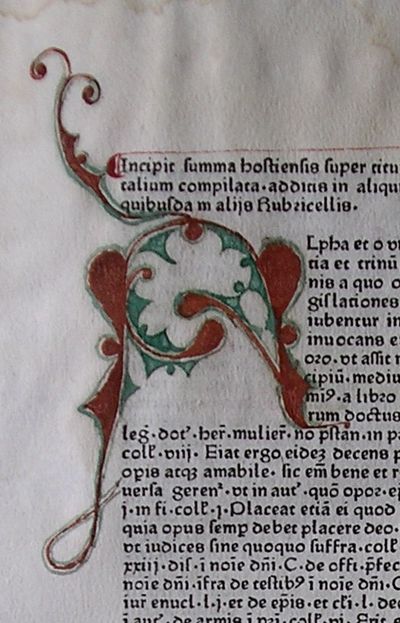 Incipit summa hostiensis super titu
talium compilata·additis in aliqu
quibusda m alijs Rubricellis·
Lpha et o vt
tia et trinū
nis a quo o
gislationes
iubentur in
inuocans e
oro·vt assit
cipiū·mediu
a libro
rum doctus
leg̃·dot᾽·her̃·mulier̃·no p̄stan·in p
colł·viij· Eiat ergo eidez decens p
opis atqz amabile· sic em̄ bene et r
uersa geren᾽·vt in aut᾽·quō opor·ep
j·in fi·colł·j·Placeat etiā ei quod
quia opus semp debet placere deo·
vt iudices sine quoquo suffra·colł
xxiij·dis·ī noīe dn̄i·C·de offi·p̄fec
noīe dn̄i·īfra de testib9 ī noīe dn̄i·C
iur̄ enucl·l·j·et de ep̄is et cl̄i·l·dec
ī aut᾽·de armis ī